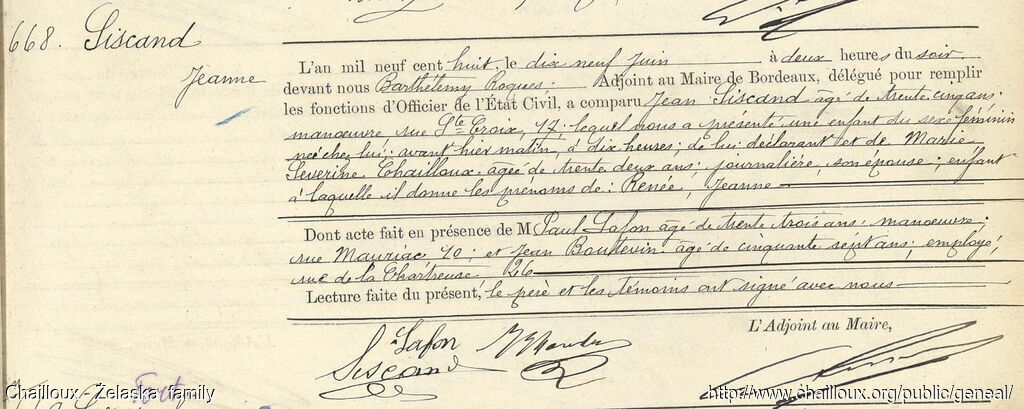 668. Siscand
Jeanne
L'an mil neuf cent huit, le dix neuf juin à deux heures du soir
devant nous Barthélemy Roques, Adjoint au Maire de Bordeaux, délégué pour remplir
les fonctions d'Officier de l'État Civil, a comparu Jean Siscand âgé de trente cinq ans;
manœuvre rue Ste Croix, 17; lequel nous a présenté une enfant du sexe féminin
née chez lui, avant hier matin, à dix heures; de lui déclarant et de Marie
Severine Chailloux âgée de trente deux ans; journalière, son épouse; enfant
à laquelle il donne les prénoms de: Renée, Jeanne
Dont acte fait en présence de M Paul Lafon âgé de trente trois ans, manœuvre;
rue Mauriac 40; et Jean Boutevin âgé de cinquante sept ans; employé,
rue de la Chartreuse 26
Lecture faite du présent, le père et les témoins ont signé avec nous
L'Adjoint au Maire,
Lafon
Siscand
Chailloux - Żelaska family
http://www.chailloux.org/public/geneal/